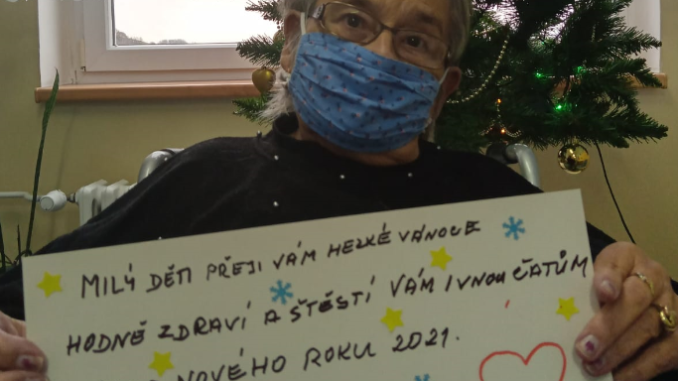 MILÝ DĚTI PŘEJI VÁM HEZKÉ VÁNOCE
HODNĚ ZDRAVÍ A ŠTĚSTÍ VÁM I VNOUČATŮM
NOVÉHO ROKU 2021.